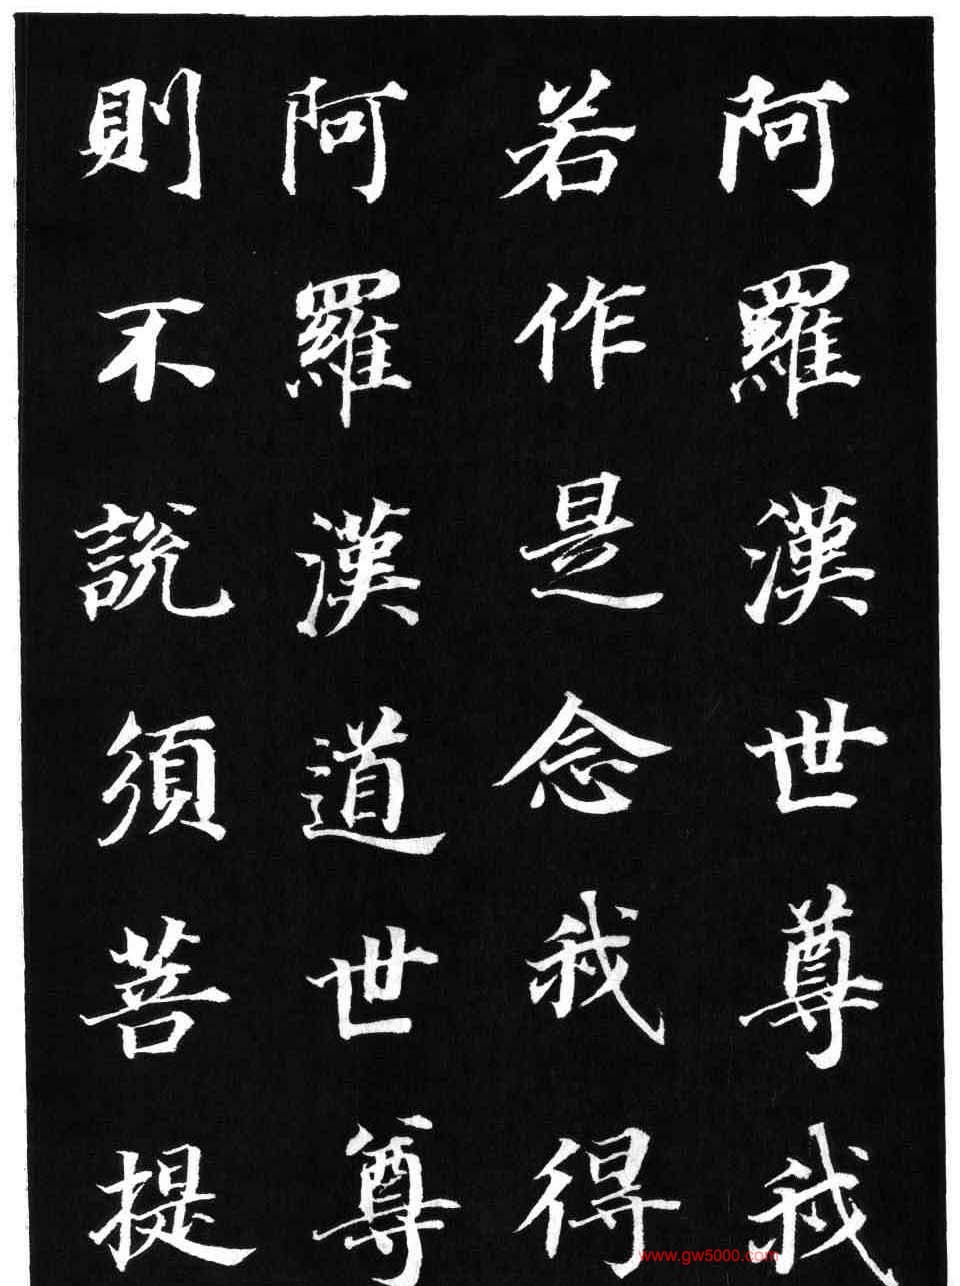 阿羅漢世尊我
若作是念我得
阿羅漢道世尊
則不說須菩提
www.gw5000.com